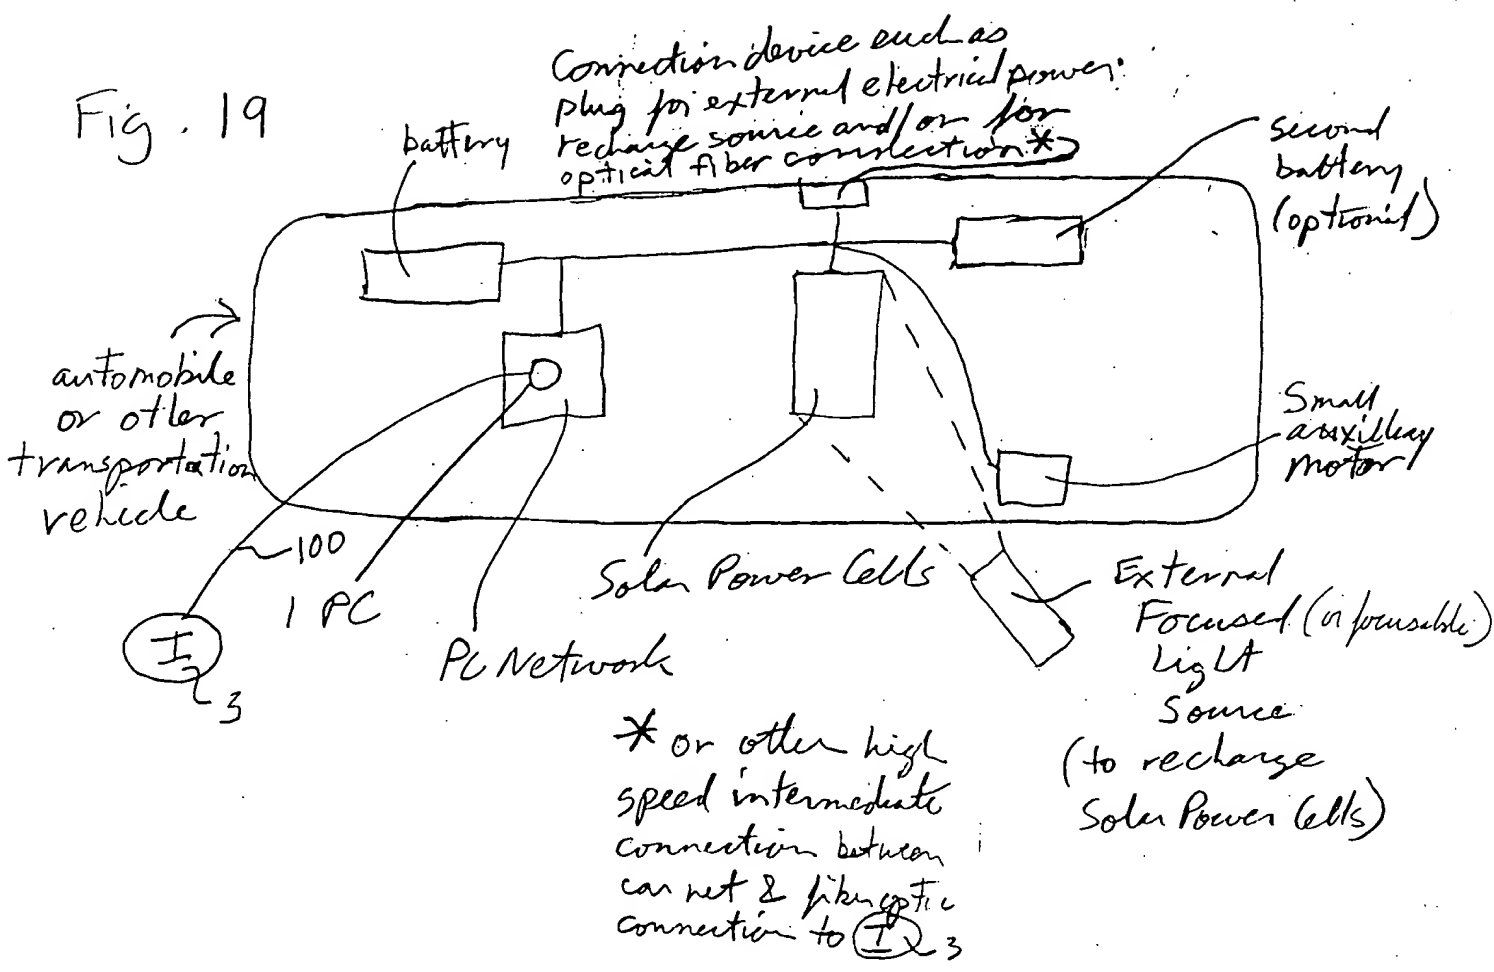 Fig. 19
Connection device such as
plug for external electrical power
recharge source and/or for
optical fiber connection *
battery
second
battery
(optional)
automobile
or other
transportation
vehicle
Small
auxillary
motor
100
1 PC
I
3
PC Network
Solar Power Cells
External
Focused (or focusable)
Light
Source
(to recharge
Solar Power Cells)
* or other high
speed intermediate
connection between
car net & fiber optic
connection to I 3